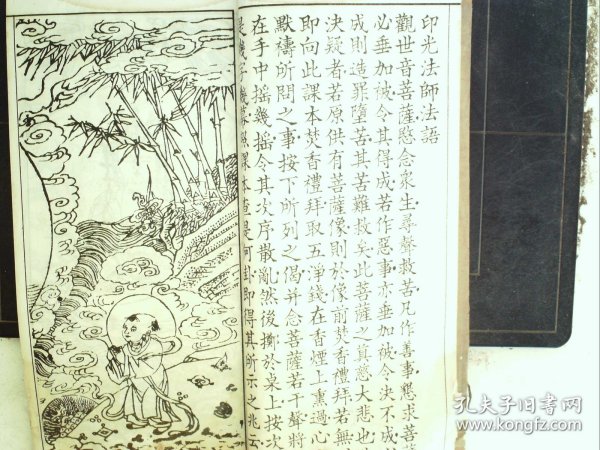 印光法師法語
觀世音菩薩愍念衆生尋聲救苦凡作善事懇求菩
必垂加被令其得成若作惡事亦垂加被令決不成
成則造罪墮苦其苦難救矣此菩薩之真慈大悲也
決疑者若原供有菩薩像則於像前焚香禮拜若無
即向此課本焚香禮拜取五淨錢在香煙上熏過心
默禱所問之事按下所列之偈并念菩薩若干聲將
在手中搖幾搖令其次序散亂然後擲於桌上按次
課本查是何卦即得其所示之兆云
孔夫子旧书网
www.kongfz.com